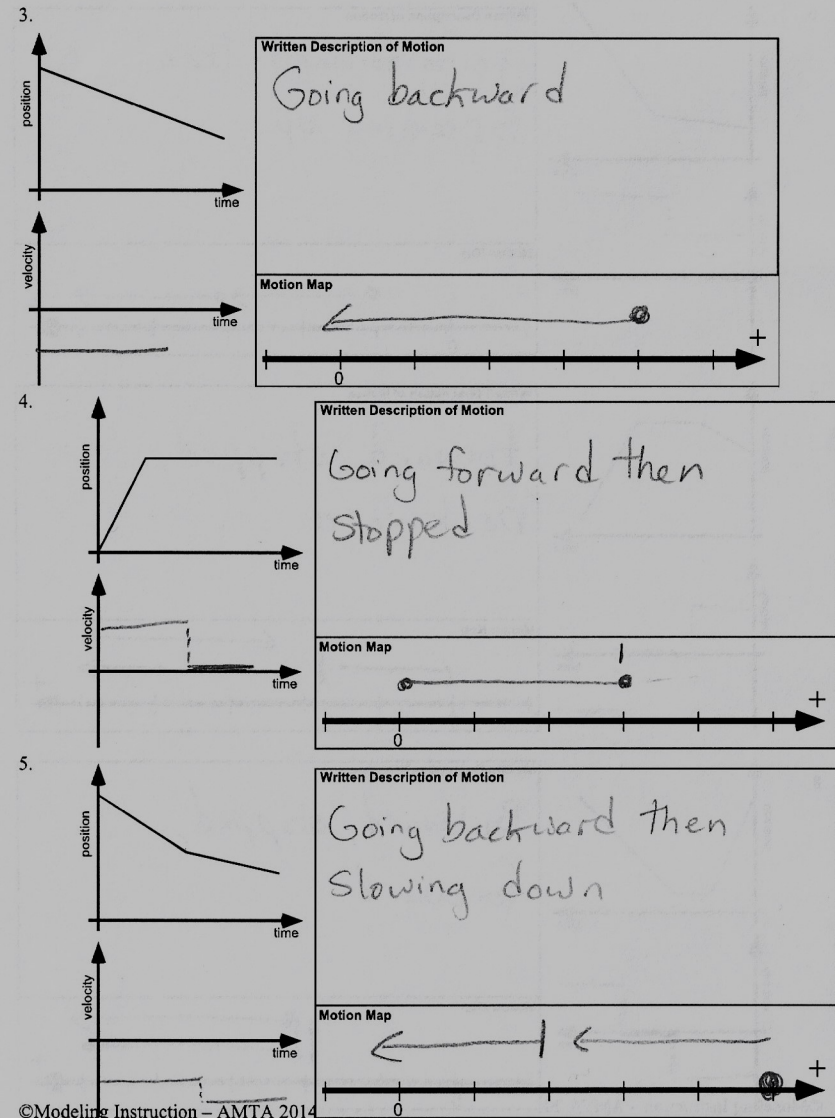 3.
position
time
velocity
time
Written Description of Motion
Going backward
Motion Map
+
0
4.
position
time
velocity
time
Written Description of Motion
Going forward then
stopped
Motion Map
+
0
5.
position
time
velocity
Written Description of Motion
Going backward then
Slowing down
Motion Map
+
0
©Modeling Instruction – AMTA 2014